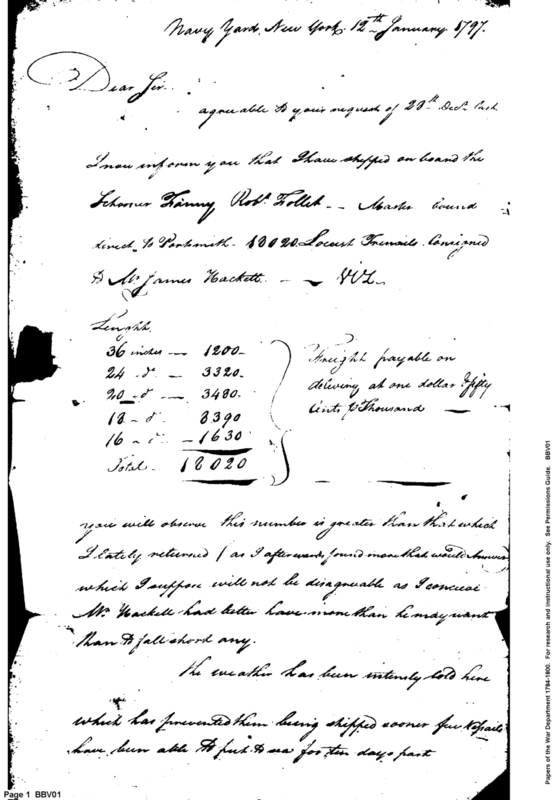 Navy Yard, New York. 12th January 1797.
Dear Sir.
agreeable to your request of 28th Decr. last
I now inform you that I have shipped on board the
Schooner Fanny, Robt. Follet -- Master bound
direct to Portsmith - 18020 Locust Trenails. Consigned
to Mr. James Hackett. -- VIZ.
Lenght.
36 inches — 1200-
24 - do - 3320.
20 - do - 3480.
18 - do. 8390
16 - do - 1630
Total. 18020
Freight payable on
delivery at one dollar & fifty
Cents pr Thousand —
you will observe this number is greater than that which
I lately returned (as I afterwards found more that would Answer)
which I suppose will not be disagreeable as I conceive
Mr. Hackett had better have more than he may want
than to fall short any.
the weather has been intensly Cold here
which has prevented them being shipped sooner few Vessels
have been able to put to sea for ten days past
Page 1 BBV01
Papers of the War Department 1784-1800. For research and instructional use only. See Permissions Guide. BBV01